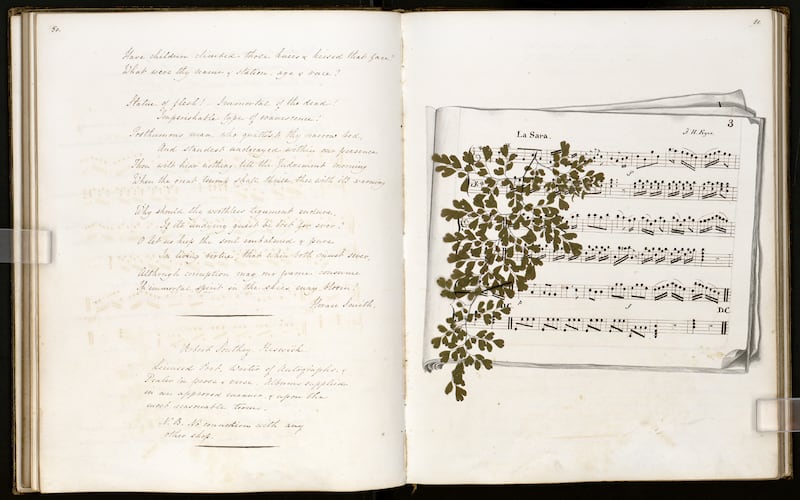 80.
Have children climbed those knees & kissed that face?
What were thy name & station, age & race?
Statue of flesh! Immortal of the dead!
Imperishable type of evanescence!
Posthumous man, who quittest thy narrow bed,
And standest undecayed within our presence
Thou wilt hear nothing till the Judgement morning
When the great trump shall thrill thee with its warning
Why should this worthless tegument endure,
If its undying guest be lost for ever?
O let us keep the soul embalmed & pure
In living virtue, that when both must sever,
Although corruption may our frame consume
Th' immortal spirit in the skies may bloom!
Horace Smith.
Robert Southey Keswick
Licensed Poet, Writer of Autographs, &
Dealer in prose & verse. Albums supplied
in an approved manner & upon the
most reasonable terms.
N.B. No connection with any
other shop.
3
La Sara.
D.C.